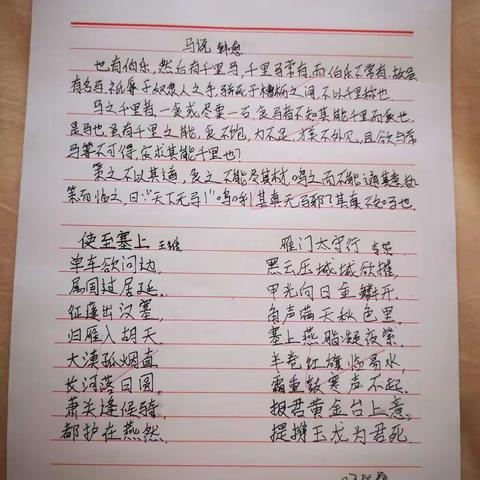 马说 韩愈
世有伯乐,然后有千里马,千里马常有,而伯乐不常有,故虽
有名马,祇辱于奴隶人之手,骈死于槽枥之间,不以千里称也
马之千里者,一食或尽粟一石,食马者不知其能千里而食也,
是马也,虽有千里之能,食不饱,力不足,才美不外见,且欲与常
马等不可得,安求其能千里也?
策之不以其道,食之不能尽其材,鸣之而不能通其意,执
策而临之,曰:“天下无马!”呜呼!其真无马邪?其真不知马也.
使至塞上 王维
单车欲问边,
属国过居延.
征蓬出汉塞,
归雁入胡天.
大漠孤烟直,
长河落日圆.
萧关逢候骑,
都护在燕然.
雁门太守行 李贺
黑云压城城欲摧,
甲光向日金鳞开.
角声满天秋色里,
塞上燕脂凝夜紫.
半卷红旗临易水,
霜重鼓寒声不起.
报君黄金台上意,
提携玉龙为君死.